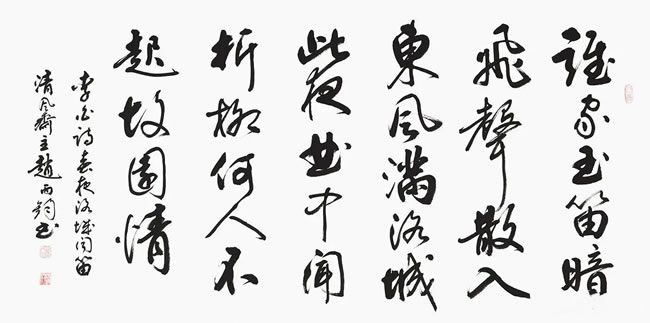 誰家玉笛暗
飛聲散入
東風滿洛城
此夜曲中聞
折柳何人不
起故園情
李白詩春夜洛城聞笛
清風齋主趙雨鈞書